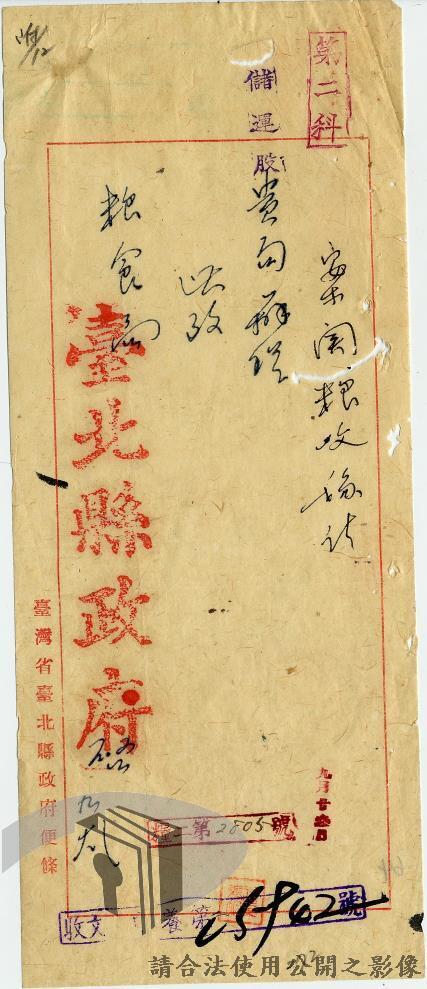 第二科
儲運股
案關糧政移請
貴局辦理
此致
糧食局
臺北縣政府啟
九月廿叁日
糧二第2805號
收文 養 第25942號
臺灣省臺北縣政府便條
請合法使用公開之影像